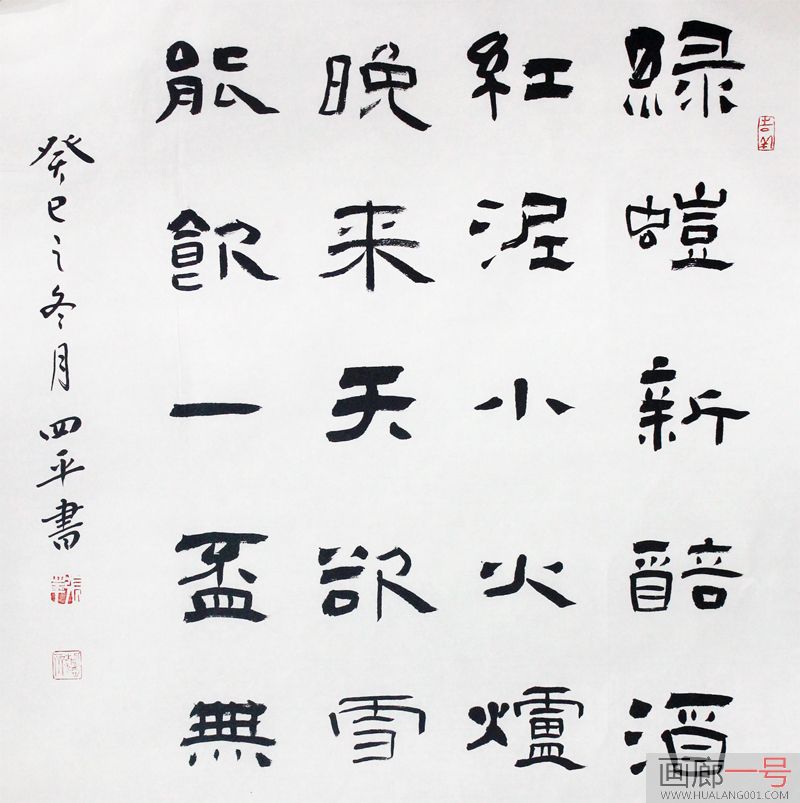 綠螘新醅酒
紅泥小火爐
晚来天欲雪
能飲一盃無
癸巳之冬月四平書
画廊一号
WWW.HUALANG001.COM